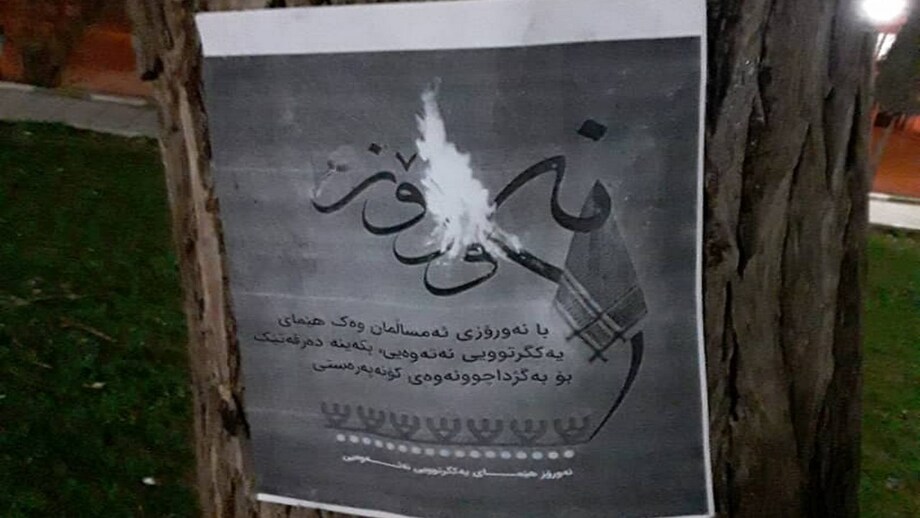 نەورۆز
با نەورۆزی ئەمساڵمان وەک هێمای
یەکگرتوویی نەتەوەیی، بکەینە دەرفەتێک
بۆ بەگژداچوونەوەی کۆنەپەرەستی
نەورۆز هێمـــای یەکگرتوویی نەتـــەوەیی